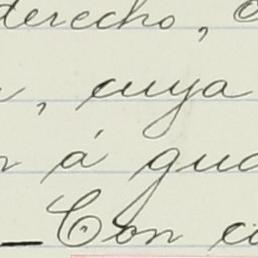 derecho,
, cuya
á gua
— Con